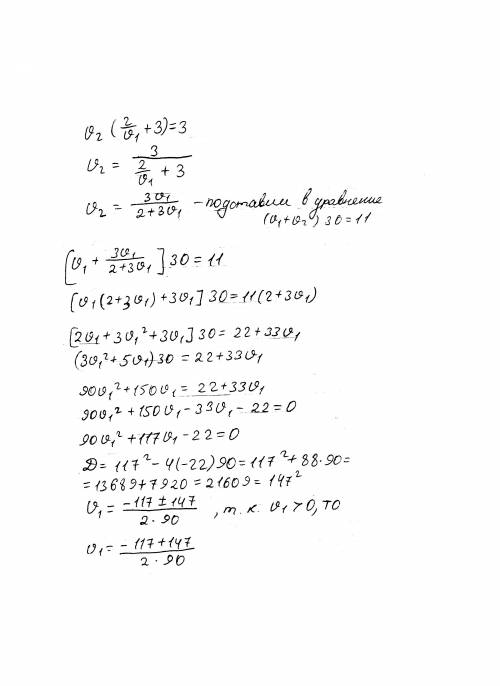 υ₂ (2/υ₁ + 3) = 3
υ₂ = 3/(2/υ₁ + 3)
υ₂ = 3υ₁/(2+3υ₁) – подставим в уравнение
(υ₁+υ₂) 30 = 11
[υ₁ + 3υ₁/(2+3υ₁)] 30 = 11
[υ₁(2+3υ₁)+3υ₁] 30 = 11(2+3υ₁)
[2υ₁+3υ₁²+3υ₁] 30 = 22+33υ₁
(3υ₁²+5υ₁) 30 = 22+33υ₁
90υ₁²+150υ₁ = 22+33υ₁
90υ₁²+150υ₁-33υ₁-22=0
90υ₁²+117υ₁-22=0
D = 117²-4(-22)90 = 117²+88·90=
= 13689+7920 = 21609 = 147²
υ₁ = (-117 ± 147)/(2·90) , т.к. υ₁ > 0, то
υ₁ = (-117+147)/(2·90)